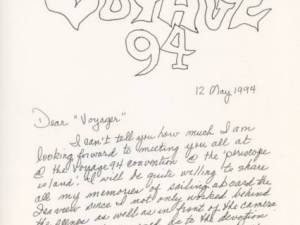 VOYAGE
94
12 May 1994
Dear "Voyager"
I can't tell you how much I am
looking forward to meeting you all at
@ the Voyage 94 convention @ the periscope
island. I will be quite willing to share
all my memories of sailing aboard the
Seaview since I not only worked behind
the scenes as well as in front of the camera
to the devotion